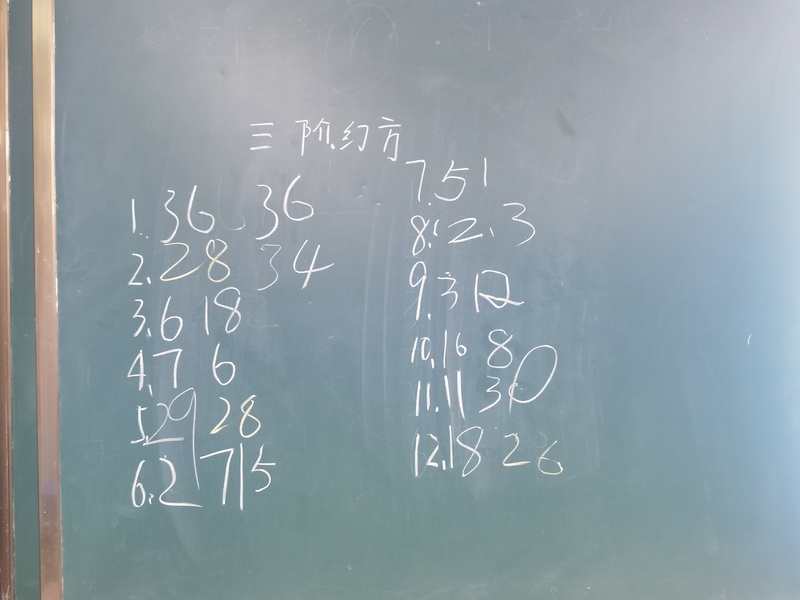 三阶幻方
1. 36 36
2. 28 34
3. 6 18
4. 7 6
5. 29 28
6. 2 7 15
7. 51
8. 12. 3
9. 3 12
10. 16 8
11. 11 30
12. 18 26